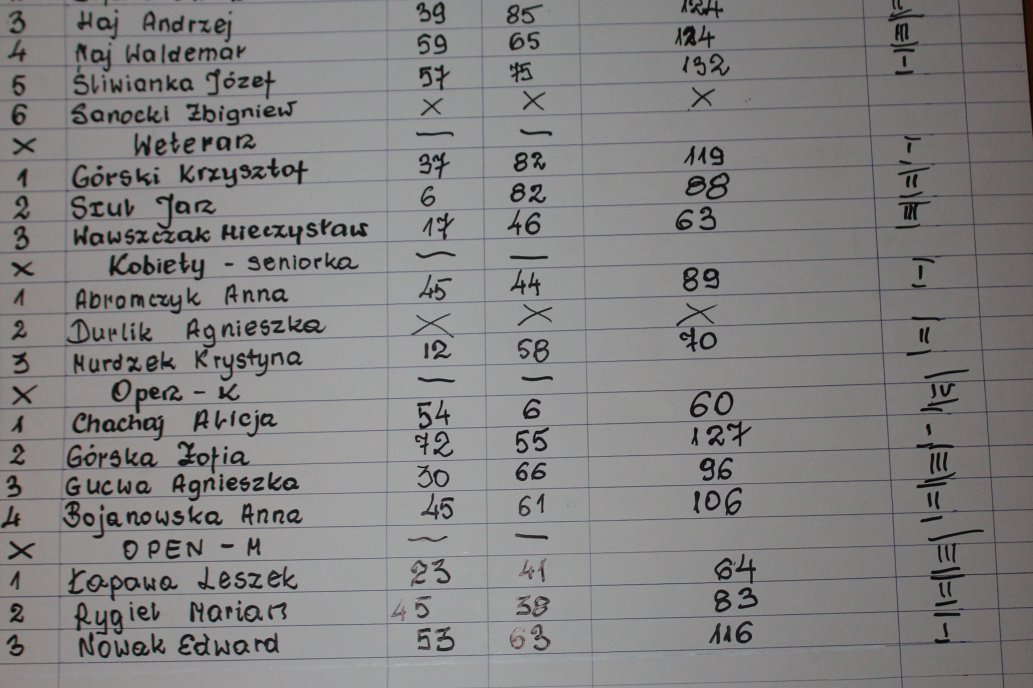 3 Haj Andrzej 39 85 124 II
4 Naj Waldemar 59 65 124 III
5 Śliwianka Józef 57 75 132 I
6 Sanocki Zbigniew X X X
X Weteran — —
1 Górski Krzysztof 37 82 119 I
2 Szul Jan 6 82 88 II
3 Wawszczak Mieczysław 17 46 63 III
X Kobiety - seniorka — —
1 Abromczyk Anna 45 44 89 I
2 Durlik Agnieszka X X X
3 Murdzek Krystyna 12 58 70 II
X Open - K — —
1 Chachaj Alicja 54 6 60 IV
2 Górska Zofia 72 55 127 I
3 Gucwa Agnieszka 30 66 96 III
4 Bojanowska Anna 45 61 106 II
X OPEN - M — —
1 Łapawa Leszek 23 41 64 III
2 Rygiel Marian 45 38 83 II
3 Nowak Edward 53 63 116 I